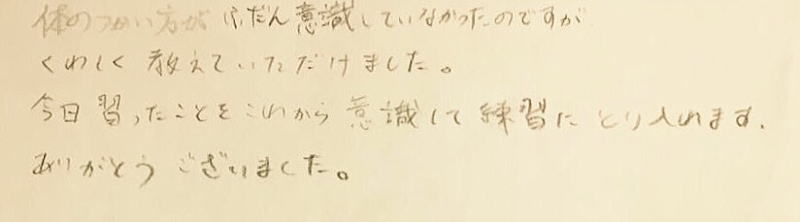 体のつかい方がふだん意識していなかったのですが
くわしく教えていただけました。
今日習ったことをこれから意識して練習にとり入れます.
ありがとうございました。